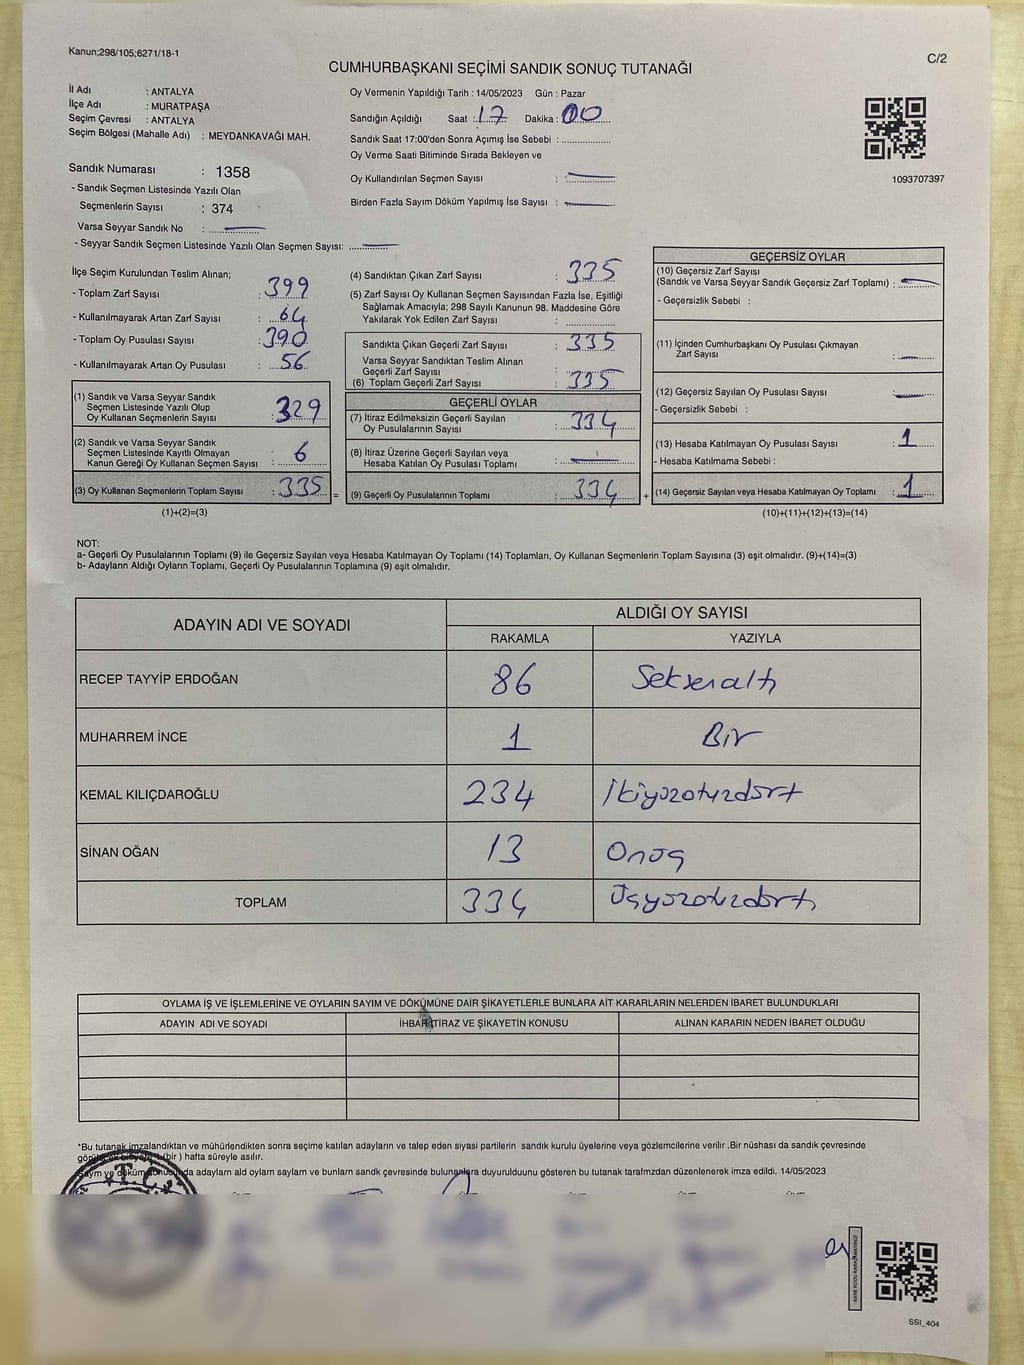 Kanun;298/105;6271/18-1
C/2
CUMHURBAŞKANI SEÇİMİ SANDIK SONUÇ TUTANAĞI
İl Adı : ANTALYA
İlçe Adı : MURATPAŞA
Seçim Çevresi : ANTALYA
Seçim Bölgesi (Mahalle Adı) : MEYDANKAVAĞI MAH.
Sandık Numarası : 1358
- Sandık Seçmen Listesinde Yazılı Olan
Seçmenlerin Sayısı : 374
Varsa Seyyar Sandık No :
- Seyyar Sandık Seçmen Listesinde Yazılı Olan Seçmen Sayısı:
Oy Vermenin Yapıldığı Tarih : 14/05/2023 Gün : Pazar
Sandığın Açıldığı Saat : 17 Dakika : 00
Sandık Saat 17:00'den Sonra Açımış İse Sebebi :
Oy Verme Saati Bitiminde Sırada Bekleyen ve
Oy Kullandırılan Seçmen Sayısı :
Birden Fazla Sayım Döküm Yapılmış İse Sayısı :
1093707397
İlçe Seçim Kurulundan Teslim Alınan;
- Toplam Zarf Sayısı : 399
- Kullanılmayarak Artan Zarf Sayısı : 64
- Toplam Oy Pusulası Sayısı : 390
- Kullanılmayarak Artan Oy Pusulası : 56
(1) Sandık ve Varsa Seyyar Sandık
Seçmen Listesinde Yazılı Olup
Oy Kullanan Seçmenlerin Sayısı : 329
(2) Sandık ve Varsa Seyyar Sandık
Seçmen Listesinde Kayıtlı Olmayan
Kanun Gereği Oy Kullanan Seçmen Sayısı : 6
(3) Oy Kullanan Seçmenlerin Toplam Sayısı : 335 =
(1)+(2)=(3)
(4) Sandıktan Çıkan Zarf Sayısı : 335
(5) Zarf Sayısı Oy Kullanan Seçmen Sayısından Fazla İse, Eşitliği
Sağlamak Amacıyla; 298 Sayılı Kanunun 98. Maddesine Göre
Yakılarak Yok Edilen Zarf Sayısı :
Sandıkta Çıkan Geçerli Zarf Sayısı : 335
Varsa Seyyar Sandıktan Teslim Alınan
Geçerli Zarf Sayısı :
(6) Toplam Geçerli Zarf Sayısı : 335
GEÇERLİ OYLAR
(7) İtiraz Edilmeksizin Geçerli Sayılan
Oy Pusulalarının Sayısı : 334
(8) İtiraz Üzerine Geçerli Sayılan veya
Hesaba Katılan Oy Pusulası Toplamı :
(9) Geçerli Oy Pusulalarının Toplamı : 334 +
GEÇERSİZ OYLAR
(10) Geçersiz Zarf Sayısı
(Sandık ve Varsa Seyyar Sandık Geçersiz Zarf Toplamı) :
- Geçersizlik Sebebi :
(11) İçinden Cumhurbaşkanı Oy Pusulası Çıkmayan
Zarf Sayısı :
(12) Geçersiz Sayılan Oy Pusulası Sayısı :
- Geçersizlik Sebebi :
(13) Hesaba Katılmayan Oy Pusulası Sayısı : 1
- Hesaba Katılmama Sebebi :
(14) Geçersiz Sayılan veya Hesaba Katılmayan Oy Toplamı : 1
(10)+(11)+(12)+(13)=(14)
NOT:
a- Geçerli Oy Pusulalarının Toplamı (9) ile Geçersiz Sayılan veya Hesaba Katılmayan Oy Toplamı (14) Toplamları, Oy Kullanan Seçmenlerin Toplam Sayısına (3) eşit olmalıdır. (9)+(14)=(3)
b- Adayların Aldığı Oyların Toplamı, Geçerli Oy Pusulalarının Toplamına (9) eşit olmalıdır.
ADAYIN ADI VE SOYADI ALDIĞI OY SAYISI
RAKAMLA YAZIYLA
RECEP TAYYİP ERDOĞAN 86 Seksenaltı
MUHARREM İNCE 1 Bir
KEMAL KILIÇDAROĞLU 234 İkiyüzotuzdört
SİNAN OĞAN 13 Onüç
TOPLAM 334 Üçyüzotuzdört
OYLAMA İŞ VE İŞLEMLERİNE VE OYLARIN SAYIM VE DÖKÜMÜNE DAİR ŞİKAYETLERLE BUNLARA AİT KARARLARIN NELERDEN İBARET BULUNDUKLARI
ADAYIN ADI VE SOYADI İHBAR İTİRAZ VE ŞİKAYETİN KONUSU ALINAN KARARIN NEDEN İBARET OLDUĞU
*Bu tutanak imzalandıktan ve mühürlendikten sonra seçime katılan adayların ve talep eden siyasi partilerin sandık kurulu üyelerine veya gözlemcilerine verilir .Bir nüshası da sandık çevresinde
(bir ) hafta süreyle asılır.
adayların ald oyların sayların ve bunların sandk çevresinde bulunanlara duyurulduunu gösteren bu tutanak tarafmzdan düzenlenerek imza edildi. 14/05/2023
T.C.
SSI_404